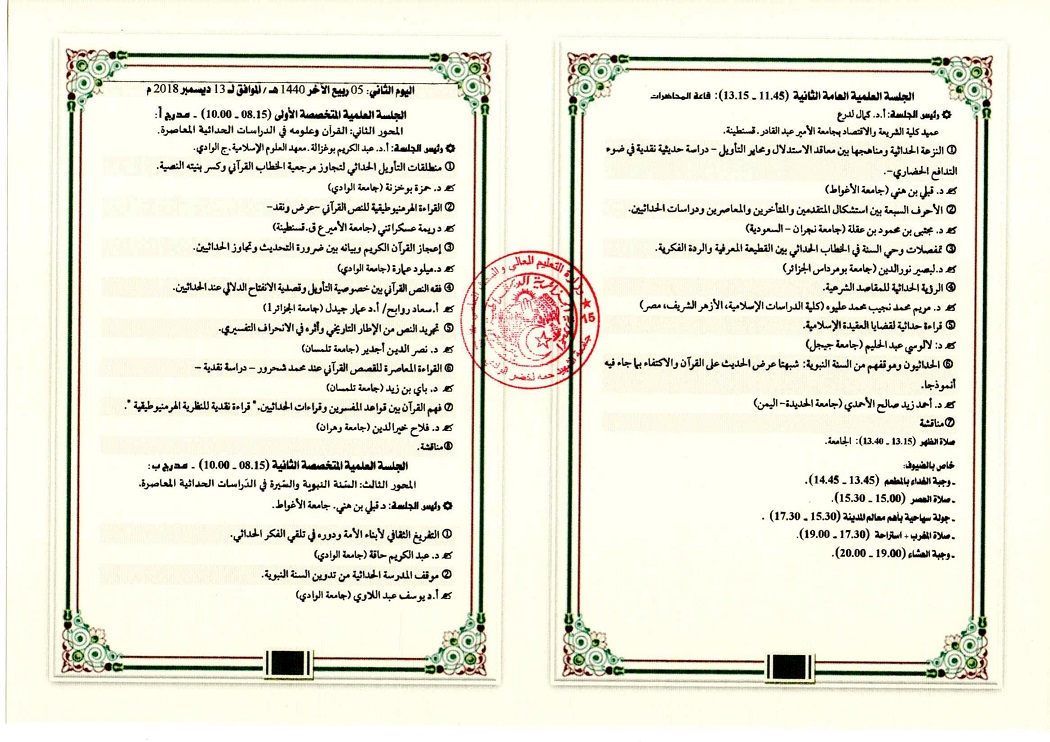 الجلسة العلمية العامة الثانية (11.45 ـ 13.15): قاعة المحاضرات
رئيس الجلسة: أ.د. كمال لدرع
عميد كلية الشريعة والاقتصاد بجامعة الأمير عبد القادر. قسنطينة.
① النزعة الحداثية ومناهجها بين معاقد الاستدلال ومحاير التأويل – دراسة حديثية نقدية في ضوء
التدافع الحضاري–.
د. قبلي بن هني (جامعة الأغواط)
② الأحرف السبعة بين استشكال المتقدمين والمتأخرين والمعاصرين ودراسات الحداثيين.
د. مجتبى بن محمود بن عقلة (جامعة نجران – السعودية)
③ تمفصلات وحي السنة في الخطاب الحداثي بين القطيعة المعرفية والردة الفكرية.
د.لبصير نورالدين (جامعة بومرداس الجزائر)
④ الرؤية الحداثية للمقاصد الشرعية.
د. مريم محمد نجيب محمد عليوه (كلية الدراسات الإسلامية، الأزهر الشريف، مصر)
⑤ قراءة حداثية لقضايا العقيدة الإسلامية.
د: لالوسي عبد الحليم (جامعة جيجل)
⑥ الحداثيون وموقفهم من السنة النبوية: شبهتا عرض الحديث على القرآن والاكتفاء بما جاء فيه
أنموذجا.
د. أحمد زيد صالح الأحدي (جامعة الحديدة– اليمن)
⑦ مناقشة
صلاة الظهر (13.15 ـ 13.40): الجامعة.
خاص بالضيوف:
ـ وجبة الغداء بالمطعم (13.45 ـ 14.45).
ـ صلاة العصر (15.00 ـ 15.30).
ـ جولة سياحية بأهم معالم المدينة (15.30 ـ 17.30) .
ـ صلاة المغرب + استراحة (17.30 ـ 19.00).
ـ وجبة العشاء (19.00 ـ 20.00).
اليوم الثاني: 05 ربيع الآخر 1440 هـ / الموافق لـ 13 ديسمبر 2018 م
الجلسة العلمية المتخصصة الأولى (08.15 ـ 10.00) ـ مدرج أ:
المحور الثاني: القرآن وعلومه في الدراسات الحداثية المعاصرة.
رئيس الجلسة: أ.د. عبد الكريم بوغزالة. معهد العلوم الإسلامية.ج الوادي.
① منطلقات التأويل الحداثي لتجاوز مرجعية الخطاب القرآني وكسر بنيته النصية.
د. حمزة بوخزنة (جامعة الوادي)
② القراءة الهرمنوطيقية للنص القرآني –عرض ونقد–
د ريمة عسكراتني (جامعة الأمير ع ق. قسنطينة)
③ إعجاز القرآن الكريم وبيانه بين ضرورة التحديث وتجاوز الحداثيين.
د.ميلود عمارة (جامعة الوادي)
④ فقه النص القرآني بين خصوصية التأويل وقصدية الانفتاح الدلالي عند الحداثيين.
أ.سعاد روابح/ أ.د عمار جيدل (جامعة الجزائر1)
⑤ تجريد النص من الإطار التاريخي وأثره في الانحراف التفسيري.
د. نصر الدين أجدير (جامعة تلمسان)
⑥ القراءة المعاصرة للقصص القرآني عند محمد شحرور – دراسة نقدية –
د. باي بن زيد (جامعة تلمسان)
⑦ فهم القرآن بين قواعد المفسرين وقراءات الحداثيين." قراءة نقدية للنظرية الهرمنوطيقية ".
د. فلاح خير الدين (جامعة وهران)
⑧ مناقشة.
الجلسة العلمية المتخصصة الثانية (08.15 ـ 10.00) ـ مدرج ب:
المحور الثالث: السّنة النبوية والسّيرة في الدّراسات الحداثية المعاصرة.
رئيس الجلسة: د قبلي بن هني. جامعة الأغواط.
① التفريغ الثقافي لأبناء الأمة ودوره في تلقي الفكر الحداثي.
د. عبد الكريم حاقة (جامعة الوادي)
② موقف المدرسة الحداثية من تدوين السنة النبوية.
أ.د يوسف عبد اللاوي (جامعة الوادي)
15